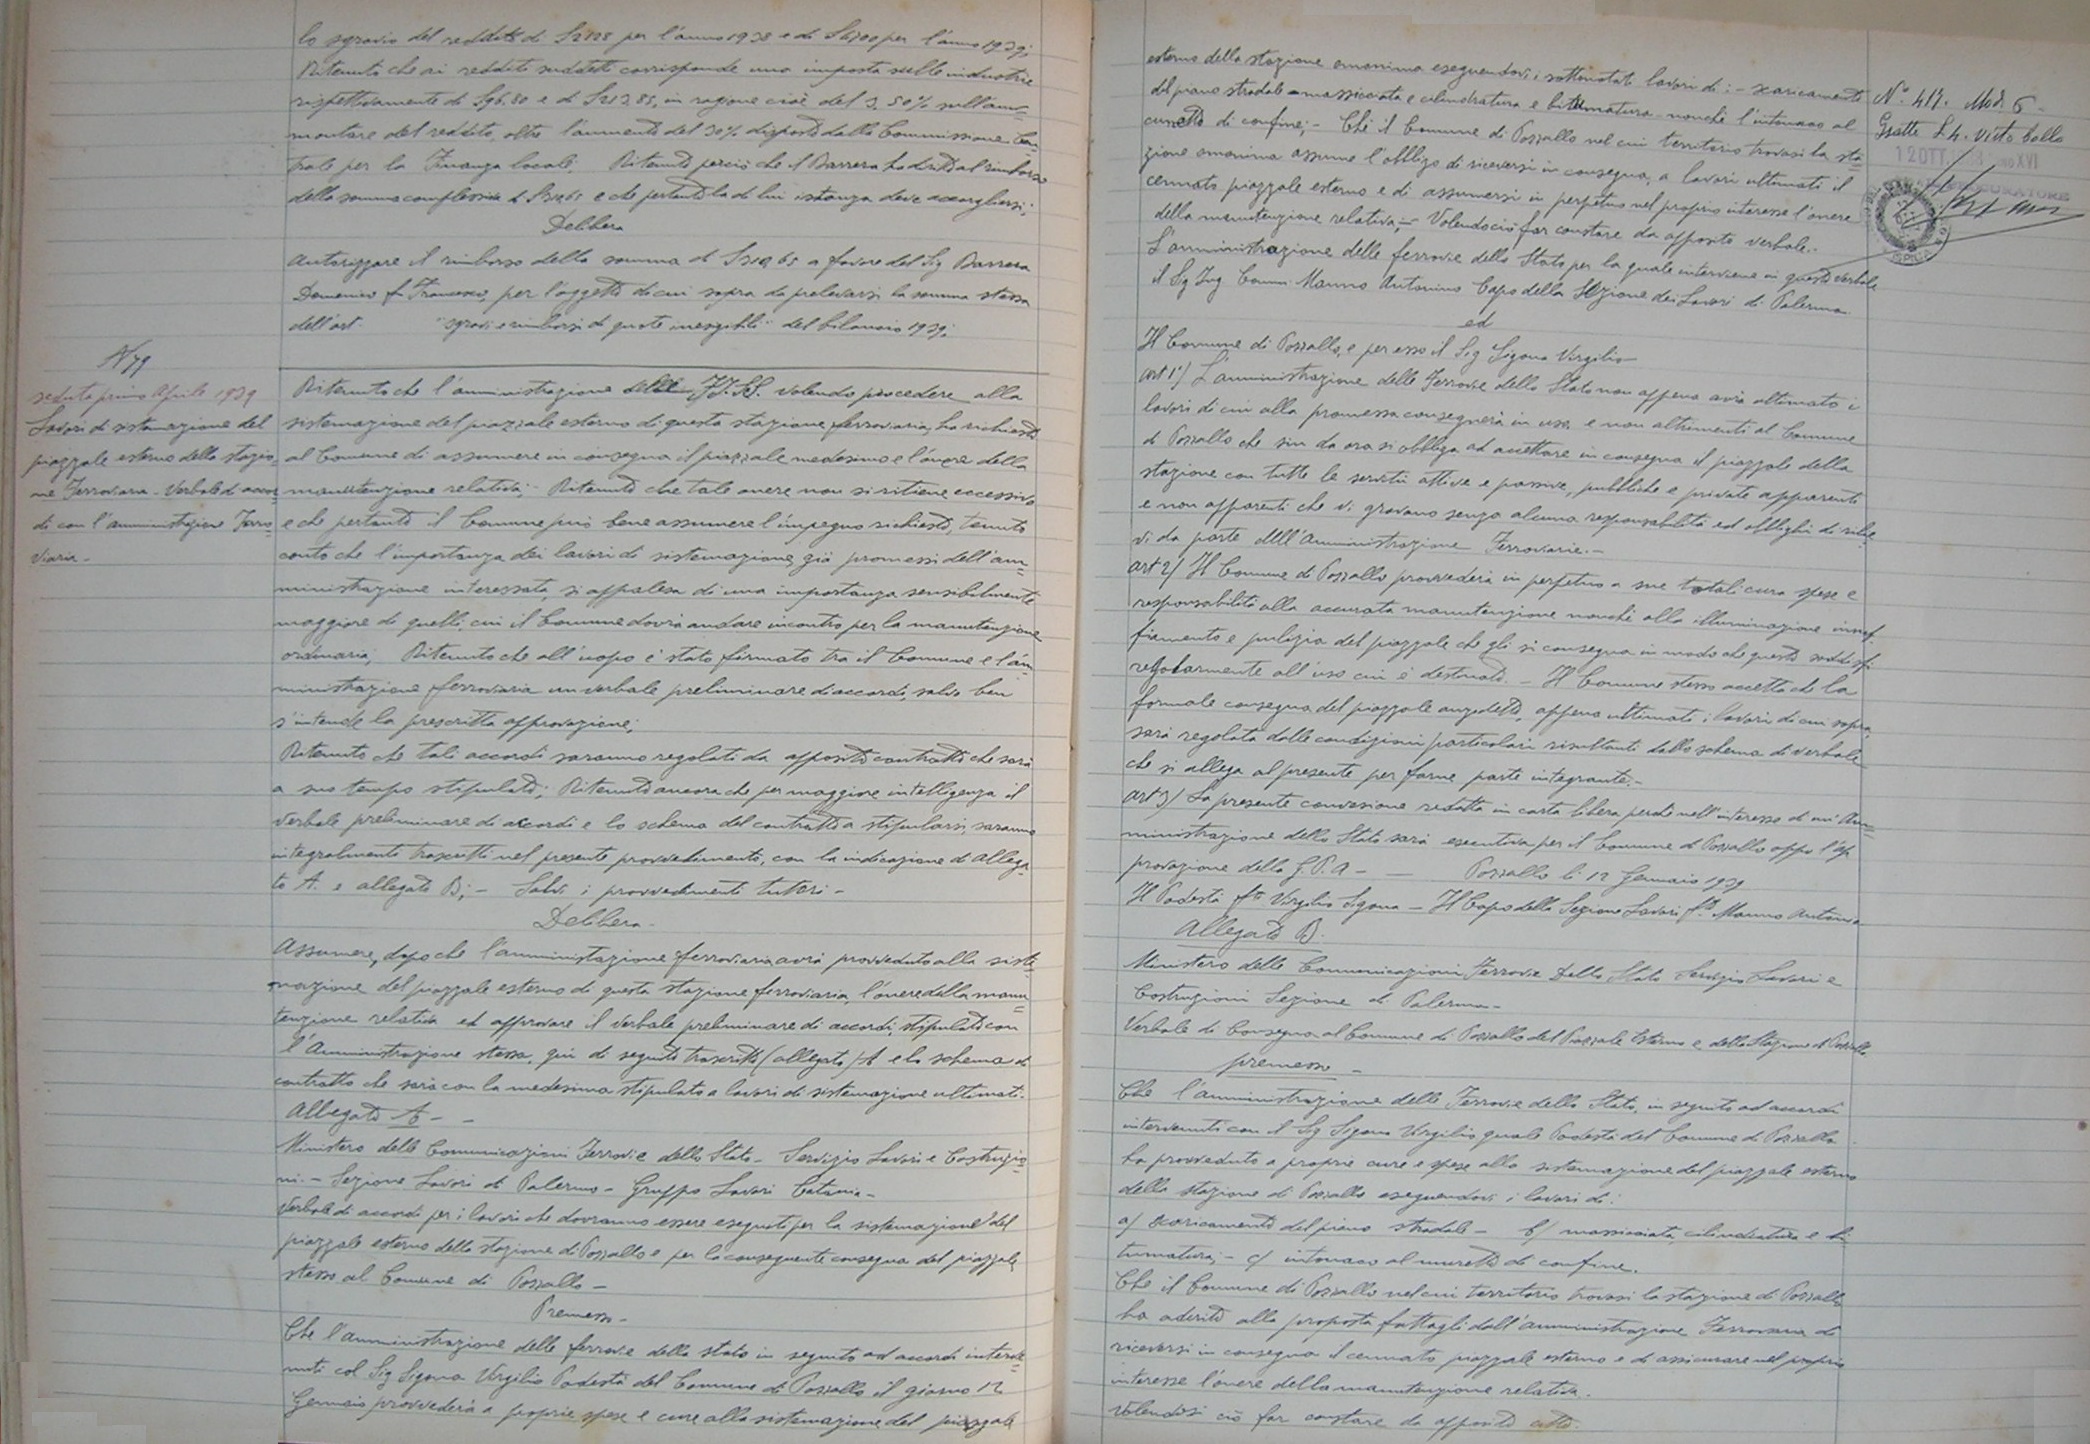 lo sgravio del reddito di per l'anno 1938 e di per l'anno 1939;
Ritenuto che ai redditi suddetti corrisponde una imposta sulle industrie
rispettivamente di e di in ragione cioè del 3,50% sull'am=
montare del reddito, oltre l'aumento del 30% disposto dalla Commissione Cen=
trale per la Finanza locale; Ritenuto perciò che il Barrera ha diritto al rimborso
della somma complessiva di e che pertanto la di lui istanza deve accogliersi;
Delibera
Autorizzare il rimborso della somma di a favore del Sig Barrera
Domenico fu Francesco, per l'oggetto di cui sopra da prelevarsi la somma stessa
dell'art. "sgravi e rimborsi di quote inesigibili" del bilancio 1939;
N 79
seduta primo Aprile 1939
Lavori di sistemazione del
piazzale esterno della stazio=
ne Ferroviaria. Verbale di accor=
di con l'amministrazione Ferro=
viaria.-
Ritenuto che l'amministrazione delle FF. SS. volendo procedere alla
sistemazione del piazzale esterno di questa stazione ferroviaria, ha richiesto
al Comune di assumere in consegna il piazzale medesimo e l'onere della
manutenzione relativa;- Ritenuto che tale onere non si ritiene eccessivo
e che pertanto il Comune può bene assumere l'impegno richiesto, tenuto
conto che l'importanza dei lavori di sistemazione, già promessi dell'am=
ministrazione interessata, si appalesa di una importanza sensibilmente
maggiore di quelli, cui il Comune dovrà andare incontro per la manutenzione
ordinaria; Ritenuto che all'uopo è stato firmato tra il Comune e l'am=
ministrazione ferroviaria un verbale preliminare di accordi, salvo ben
s'intende la prescritta approvazione;
Ritenuto che tali accordi saranno regolati da apposito contratto che sarà
a suo tempo stipulato; Ritenuto ancora che per maggiore intelligenza il
verbale preliminare di accordi e lo schema del contratto a stipularsi saranno
integralmente trascritti nel presente provvedimento, con la indicazione di allega=
to A. e allegato B;- Salvi i provvedimenti tutori-
Delibera-
Assumere, dopo che l'amministrazione ferroviaria avrà provveduto alla siste=
mazione del piazzale esterno di questa stazione ferroviaria, l'onere della manu=
tenzione relativa ed approvare il verbale preliminare di accordi, stipulato con
l'Amministrazione stessa, qui di seguito trascritto (allegato) A e lo schema di
contratto che sarà con la medesima stipulato a lavori di sistemazione ultimati.
Allegato A--
Ministero delle Comunicazioni Ferrovie dello Stato- Servizio Lavori e Costruzio=
ni.- Sezione Lavori di Palermo- Gruppo Lavori Catania-
Verbale di accordi per i lavori che dovranno essere eseguiti per la sistemazione del
piazzale esterno della stazione di Pozzallo e per la conseguente consegna del piazzale
stesso al Comune di Pozzallo-
Premesso-
Che l'amministrazione delle ferrovie dello stato in seguito ad accordi interve=
nuti col Sig Sigona Virgilio Podestà del Comune di Pozzallo il giorno 12
Gennaio provvederà a proprie spese e cure alla sistemazione del piazzale
esterno della stazione omonima eseguendovi i sottonotati lavori di:- scaricamento
del piano stradale - massicciata e cilindratura e bitumatura - nonché l'intonaco al
di confine;- Che il Comune di Pozzallo nel cui territorio trovasi la sta=
zione omonima assume l'obbligo di riceversi in consegna, a lavori ultimati il
cennato piazzale esterno e di assumersi in perpetuo nel proprio interesse l'onere
della manutenzione relativa;- Volendo ciò far constare da apposito verbale.-
L'amministrazione delle ferrovie dello Stato per la quale interviene in questo verbale
il Sig Ing Comm Manno Antonino Capo della Sezione dei Lavori di Palermo
ed
Il Comune di Pozzallo, e per esso il Sig Sigona Virgilio
art 1°) L'amministrazione delle Ferrovie dello Stato non appena avrà ultimato i
lavori di cui alla premessa consegnerà in uso e non altrimenti al Comune
di Pozzallo che sin da ora si obbliga ad accettare in consegna il piazzale della
stazione con tutte le servitù attive e passive, pubbliche e private apparenti
e non apparenti che vi gravano senza alcuna responsabilità ed obblighi di rilie=
vi da parte dell'Amministrazione Ferroviaria.-
art 2) Il Comune di Pozzallo provvederà in perpetuo a sue totali cura spese e
responsabilità alla accurata manutenzione nonché alla illuminazione innaf=
fiamento e pulizia del piazzale che gli si consegna in modo che questo soddisfi
regolarmente all'uso cui è destinato.- Il Comune stesso accetta che la
formale consegna del piazzale anzidetto, appena ultimati i lavori di cui sopra,
sarà regolata dalle condizioni particolari risultanti dallo schema di verbale
che si allega al presente per farne parte integrante.-
art 3) La presente convenzione redatta in carta libera perché nell'interesse di un'Am=
ministrazione dello Stato sarà esecutiva per il Comune di Pozzallo dopo l'ap
provazione della G.P.A-- Pozzallo li 12 Gennaio 1939
Il Podestà fto Virgilio Sigona- Il Capo della Sezione Lavori fto Manno Antonino
Allegato B.
Ministero delle Comunicazioni Ferrovie Dello Stato Servizio Lavori e
Costruzioni Sezione di Palermo-
Verbale di Consegna al Comune di Pozzallo del Piazzale Esterno e della Stazione di Pozzallo
premesso-
Che l'amministrazione delle Ferrovie dello Stato, in seguito ad accordi
intervenuti con il Sig Sigona Virgilio quale Podestà del Comune di Pozzallo
ha provveduto a proprie cure e spese alla sistemazione del piazzale esterno
della stazione di Pozzallo eseguendovi i lavori di:
a) scaricamento del piano stradale- b) massicciata cilindratura e bi
tumatura;- c) intonaco al muretto di confine.
Che il Comune di Pozzallo nel cui territorio trovasi la stazione di Pozzallo
ha aderito alla proposta fattagli dall'amministrazione Ferroviaria di
riceversi in consegna il cennato piazzale esterno e di assicurare nel proprio
interesse l'onere della manutenzione relativa.
Volendosi ciò far constare da apposito atto.
N° 417. Mod. 6-
Esatte L 4. visto bollo
12 OTT. XVI
PROCURATORE